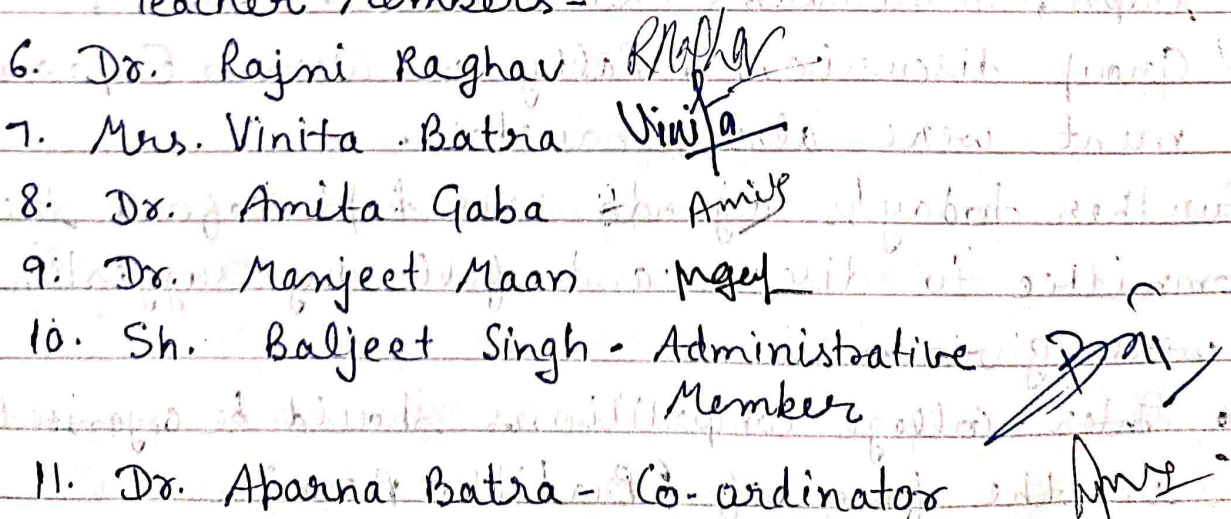 Teacher Members -
6. Dr. Rajni Raghav
7. Mrs. Vinita Batra Vinita
8. Dr. Amita Gaba -
9. Dr. Manjeet Maan
10. Sh. Baljeet Singh - Administrative
Member
11. Dr. Aparna Batra - Co-ordinator